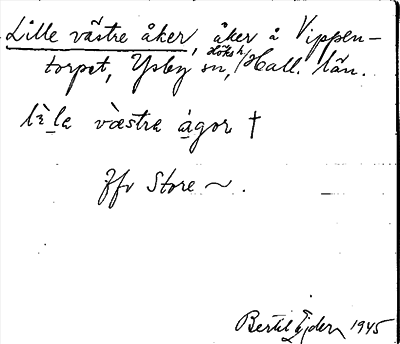 Lille västre åker, åker å Vippen-
torpet, Ysby sn, Höks h/Hall. län.
lìla væ̀stra ágor †
Jfr Store ~.
Bertil Ejder 1945